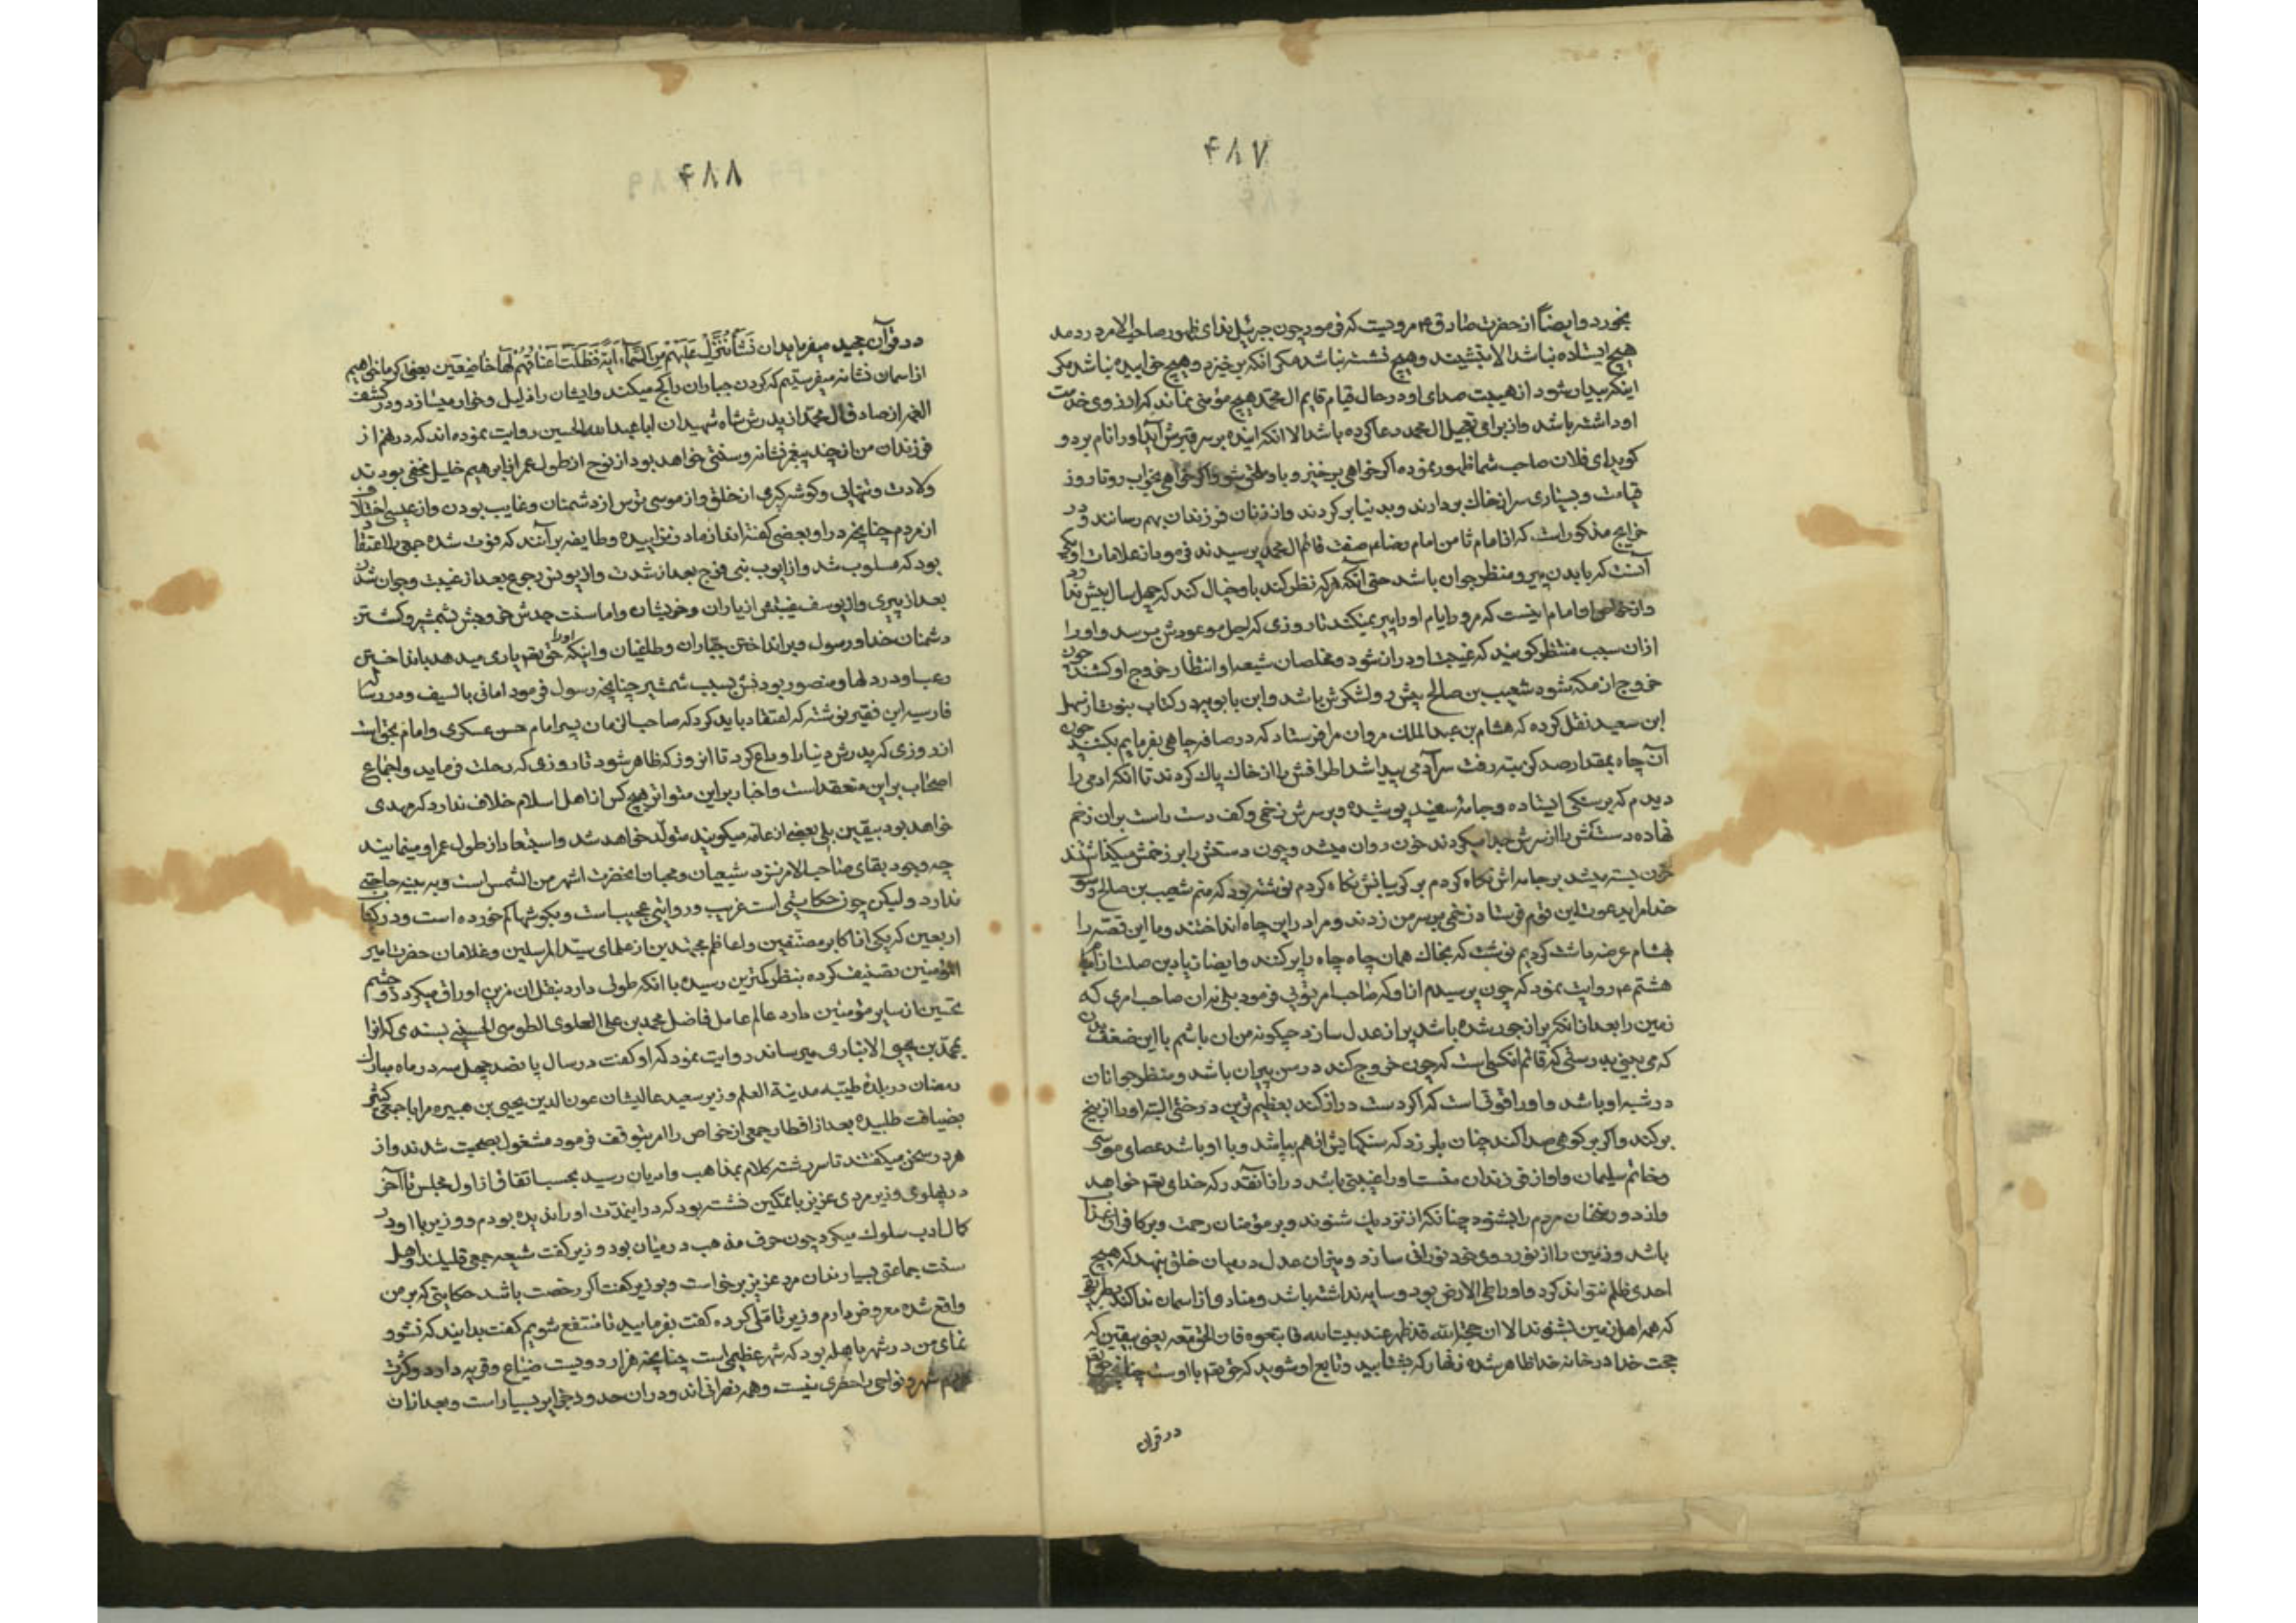 ۴۸۷
بخورد و ایضاً از حضرت صادق ع مرویست که فرمود چون جبرئیل ندای ظهور صاحب الامر در دمد
هیچ ایستاده نباشد الا بنشیند و هیچ نشسته نباشد مکر انکه برخیزد و هیچ خوابیده نباشد مکر
اینکه بیدار شود از هیبت صدای او و در حال قیام قایم ال محمد هیچ مؤمنی نماند که ارزوی خدمت
او داشته باشد و از برای تعجیل ال محمد دعا کرده باشد الا انکه اینده بر سر قبرش آید و او را نام برد و
کوید ای فلان صاحب شما ظهور نموده اکر خواهی برخیز و باو ملحق شو و اکر خواهی بخواب رو تا روز
قیامت و بسیاری سر از خاك بردارند و بدنیا بر کردند و از زنان فرزندان بهم رسانند و در
خرایج مذکور است که از امام ثامن امام رضا ع صفت قائم ال محمد پرسیدند فرمود از علامات او یکی
آنست که بابدن پیر و منظر جوان باشد حتی آنکه هرکه نظر کند باو خیال کند که چهل سال بیش ندارد
و از خواص او امام اینست که مرور ایام او را پیر نمیکند تا روزی که اجل موعودش برسد و او را
ازان سبب منتظر کویند که غیبت او دراز شود و مخلصان شیعه او انتظار خروج او کشند چون
خروج از مکه شود شعیب بن صالح پیش رو لشکرش باشد و ابن بابویه در کتاب نبوت از سهل
ابن سعید نقل کرده که هشام بن عبد الملك مروان مرا فرستاد که در صافه چاهی بفرمایم بکنند چون
آن چاه بمقدار صد کز بته رفت سر آدمی پیدا شد اطرافش را از خاك پاك کردند تا انکه ادمی را
دیدم که بر سنکی ایستاده و جامهٔ سفید پوشیده و بر سرش زخمی و کف دست راست بران زخم
نهاده دستکش را از سرش جدا میکردند خون روان میشد و چون دستش را بر زخمش میکذاشتند
خون بسته میشد بر جامه اش نکاه کردم بر کریبانش نکاه کردم نوشته بود که منم شعیب بن صالح رسول
خدا مرا بدعوت این قوم فرستاد زخمی بر سر من زدند و مرا در این چاه انداختند و ما این قصه را
بهشام عرضه داشت کردیم نوشت که بخاك همان چاه چاه را پر کنند و ایضا زیاد بن صلت از امام
هشتم ع روایت نمود که چون پرسیدم از او که صاحب امر توئی فرمود بلی نه ان صاحب امری که
زمین را بعد از انکه پر از جور شده باشد پر از عدل سازد چکونه من ان باشم با این ضعف بدن
که می بینی بدرستی که قائم انکسی است که چون خروج کند در سن پیران باشد و منظر جوانان
در شبه او باشد و او را قوتی است که اکر دست دراز کند بعظیم ترین درختی البته او را از بیخ
برکند و اکر بر کوهی صدا کند چنان بلرزد که سنکهایش از هم بپاشد و با او باشد عصای موسی
و خاتم سلیمان و او از فرزندان منست او را غیبتی باشد دراز آنقدر که خدای تعم خواهد
و از دور سخنان مردم را بشنود چنانکه از نزدیك شنوند و بر مؤمنان رحمت و بر کافران عذاب
باشد و زمین را از نور روی خود نورانی سازد و میزان عدل در میان خلق بنهد که هیچ
احدی ظلم نتواند کرد و او را طی الارض بود و سایه نداشته باشد و مناد و از اسمان ندا کند بطریقی
که همه اهل زمین بشنوند الا ان حجة الله قد ظهر عند بیت الله فاتبعوه فان الحق معه یعنی بیقین که
حجت خدا در خانه خدا ظاهر شده زنهار که بشتابید و تابع او شوید که حق تعم با اوست چنانچه حق تعم
در قران
۴۸۸
در قرآن مجید میفرماید ان نَشَأْ نُنَزِّلْ عَلَیْهِمْ مِنَ السَّمآءِ ایَةً فَظَلَّتْ اَعْناقُهُمْ لَها خاضِعینَ یعنی اکر ما خواهیم
از اسمان نشانه میفرستیم که کردن جباران را کج میکند و ایشان را ذلیل و خوار میسازد و در کشف
الغمه از صادق ال محمد از پدرش شاه شهیدان ابا عبد الله الحسین روایت نموده اند که در نهم از
فرزندان من از چند پیغمبر نشانه و سنتی خواهد بود از نوح از طول عمر از ابرهیم خلیل مخفی بودند
ولادت و تنهایی و کوشه کیری از خلق و از موسی ترس از دشمنان و غایب بودن و از عیسی اختلاف
از مردم چنانچه در او بعضی کفته اند از مادر نزاییده و طایفه بر آنند که فوت شده جمعی را اعتقاد
بود که مسلوب شد و از ایوب نبی فرج بعد از شدت و از یونس رجوع بعد از غیبت و جوان شدن
بعد از پیری و از یوسف غیبتش از یاران و خویشان و اما سنت جدش خروجش بشمشیر و کشتن
دشمنان خدا و رسول و بر انداختن جباران و طاغیان و اینکه او را حق تعم یاری میدهد بانداختن
رعب او در دلها و منصور بودنش بسبب شمشیر چنانچه رسول فرمود امانی بالسیف و در رساله
فارسیه این فقیر نوشته که اعتقاد باید کرد که صاحب الزمان پسر امام حسن عسکری و امام بحق است
از روزی که پدرش دنیا را وداع کرد تا انروز که ظاهر شود تا روزی که رحلت فرماید و اجماع
اصحاب بر این منعقد است و اخبار بر این متواتر هیچ کس از اهل اسلام خلاف ندارد که مهدی
خواهد بود بیقین بلی بعضی از عامه میکویند متولد خواهد شد و استبعاد از طول عمر او مینمایند
چه وجود بقای صاحب الامر نزد شیعیان و محبان انحضرت اشهر من الشمس است و به بینه حاجتی
ندارد و لیکن چون حکایتی است غریب و روایتی عجیب است و بکوشها کم خورده است و در کتاب
اربعین که یکی از اکابر مصنفین و اعاظم مجتهدین از علمای سید المرسلین و غلامان حضرت امیر
المؤمنین تصنیف کرده بنظر کمترین رسیده با انکه طولی دارد بنقل ان مزین اوراق میکردد و چشم
تحسین از سایر مؤمنین دارد عالم عامل فاضل محمد بن علی العلوی الطوسی الحسینی بسندی که انرا
بمحمد بن یحیی الانباری میرساند روایت نمود که او کفت در سال پانصد چهل سه در ماه مبارك
رمضان در بلدهٔ طیبه مدینة العلم وزیر سعید عالیشان عون الدین یحیی بن هبیره مرا با جمعی کثیر
بضیافت طلبیده بعد از افطار جمعی از خواص را امر بتوقف فرمود مشغول بصحبت شدند و از
هر در سخن میکفتند تا سر رشته کلام بمذاهب و ادیان رسید بحسب اتفاق از اول مجلس تا آخر
در پهلوی وزیر مردی عزیز با تمکین نشسته بود که در اینمدت او را ندیده بودم و وزیر با او در
کمال ادب سلوك میکرد چون حرف مذهب در میان بود وزیر کفت شیعه جمعی قلیلند و اهل
سنت جماعتی بسیارند ان مرد عزیز برخواست و بوزیر کفت اکر رخصت باشد حکایتی که بر من
واقع شده معروض دارم وزیر تاملی کرده کفت بفرمایید تا منتفع شویم کفت بدانید که نشو و
نمای من در شهر باهله بود که شهر عظیمی است چنانچه هزار دویست ضیاع و قریه دارد و کثرت
مردم شهر و نواحی را حصری نیست و همه نصرانی اند و دران حدود جزایر بسیار است و بعد ازان